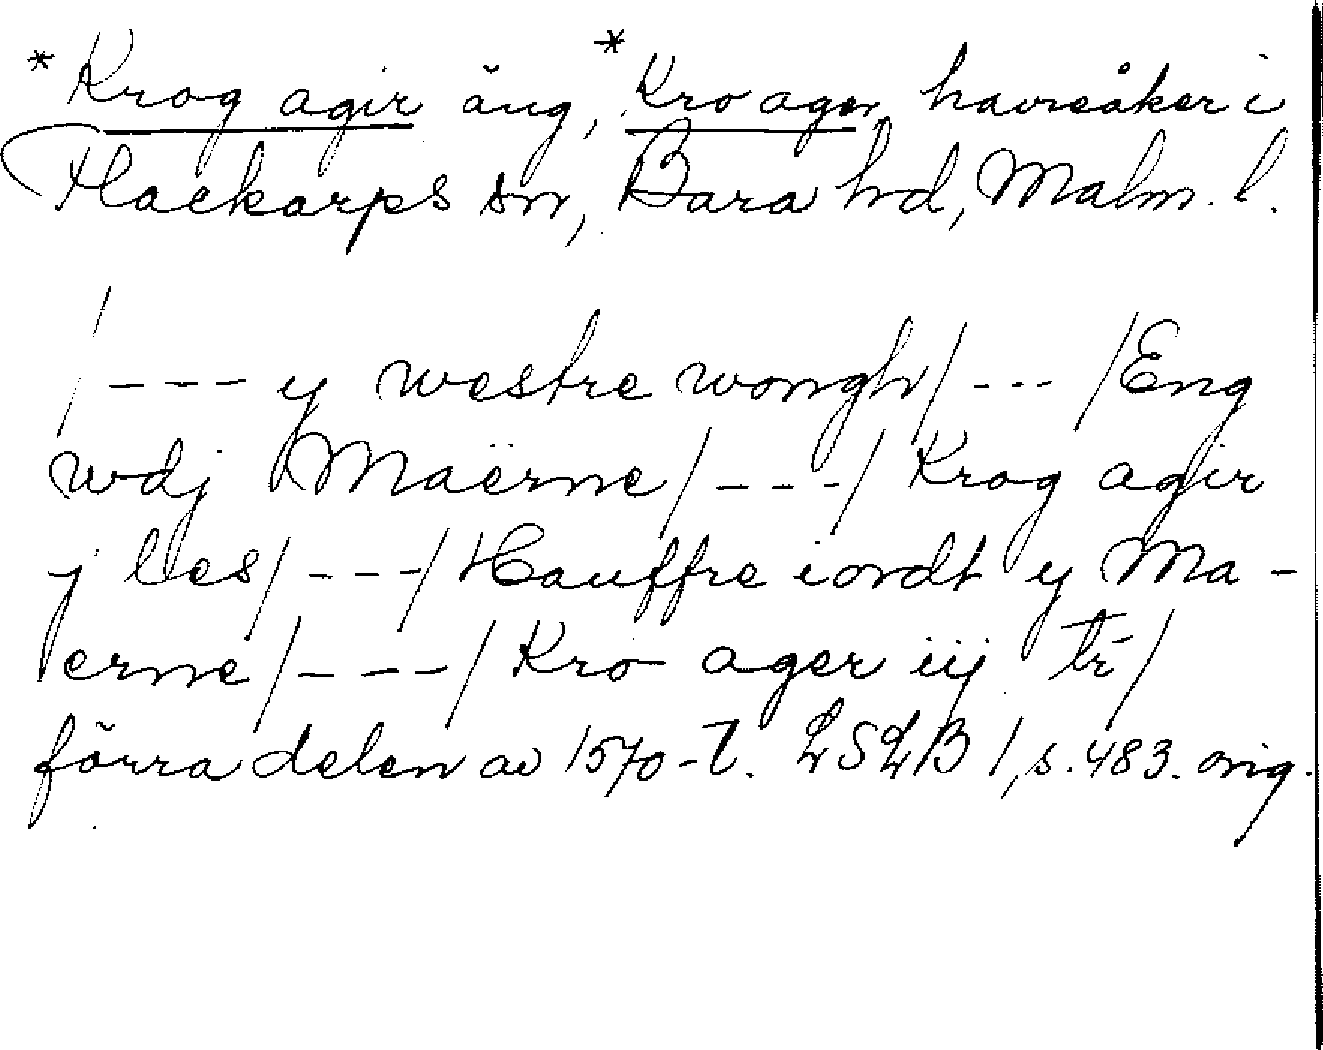 *Krog agir äng, *Kro ager, havreåker i
Flackarps sn, Bara hd, Malm. l.
/--- y westre wongh/--- /Eng
wdj Maërne/---/ Krog agir
j les/---/Hauffre iordt y Ma-
erne/---/ Kro ager iij tr/
förra delen av 1570-t. LSLB 1, s. 483. orig.